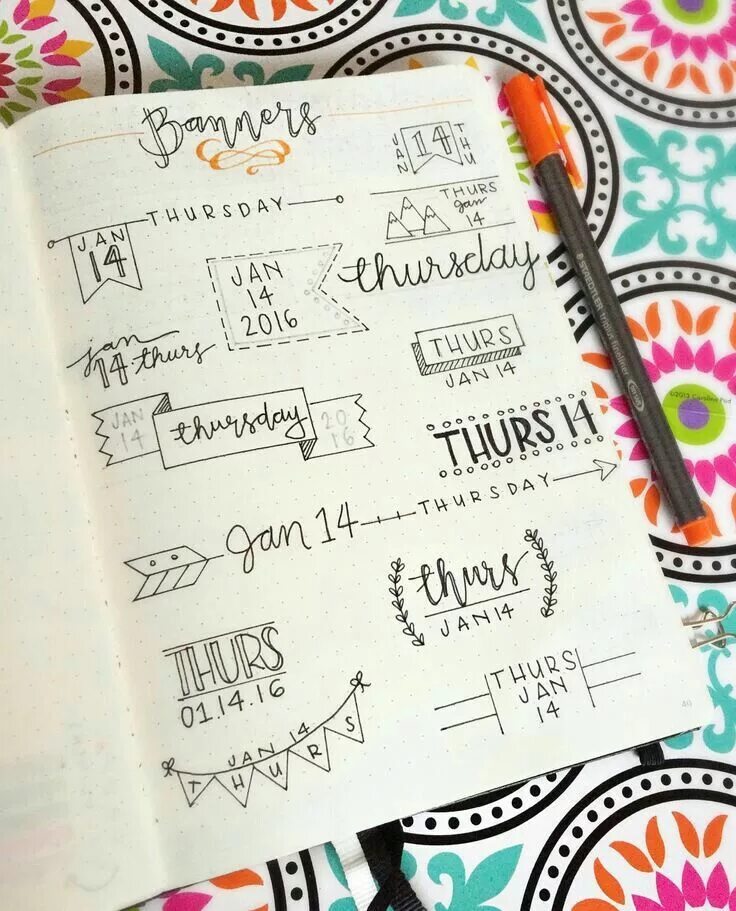 Banners
JAN
14
THU
THURSDAY
JAN
14
THURS
Jan
14
JAN
14
2016
thursday
jan
14 thurs
THURS
JAN 14
JAN
14
thursday
20
16
THURS 14
Jan 14
THURSDAY
thurs
JAN 14
THURS
01.14.16
THURS
JAN
14
JAN 14
THURS
40
STAEDTLER triplus fineliner
©2013 Caroline Pod